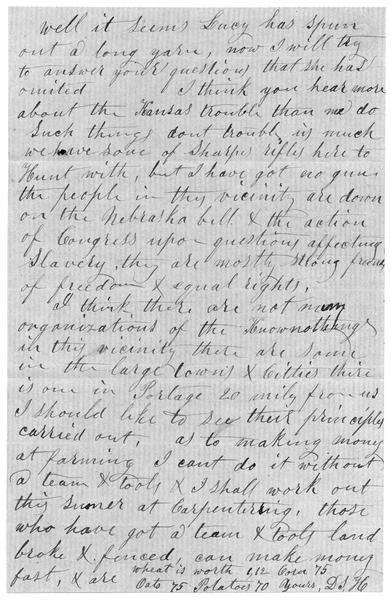 well it seems Lucy has spun
out a long yarn, now I will try
to answer your questions that she has
omited I think you hear more
about the Kansas trouble than we do
Such things dont trouble us much
we have some of Sharps rifles here to
Hunt with, but I have got no gun
the people in this vicinity are down
on the Nebraska bill & the action
of Congress upon questions affecting
Slavery, they are mostly strong friends
of freedom & equal rights,
I think there are not many
organizations of the Knownothings
in this vicinity there are some
in the large towns & Cities there
is one in Portage 20 miles from us
I should like to see their principles
carried out, as to making money
at farming I cant do it without
a team & tools & I shall work out
this sumer at Carpentering, those
who have got a team & tools land
broke & fenced, can make money
fast, & are wheat is worth 1,12 Corn 75
Oats 75 Potatoes 70 Yours, D.S.H